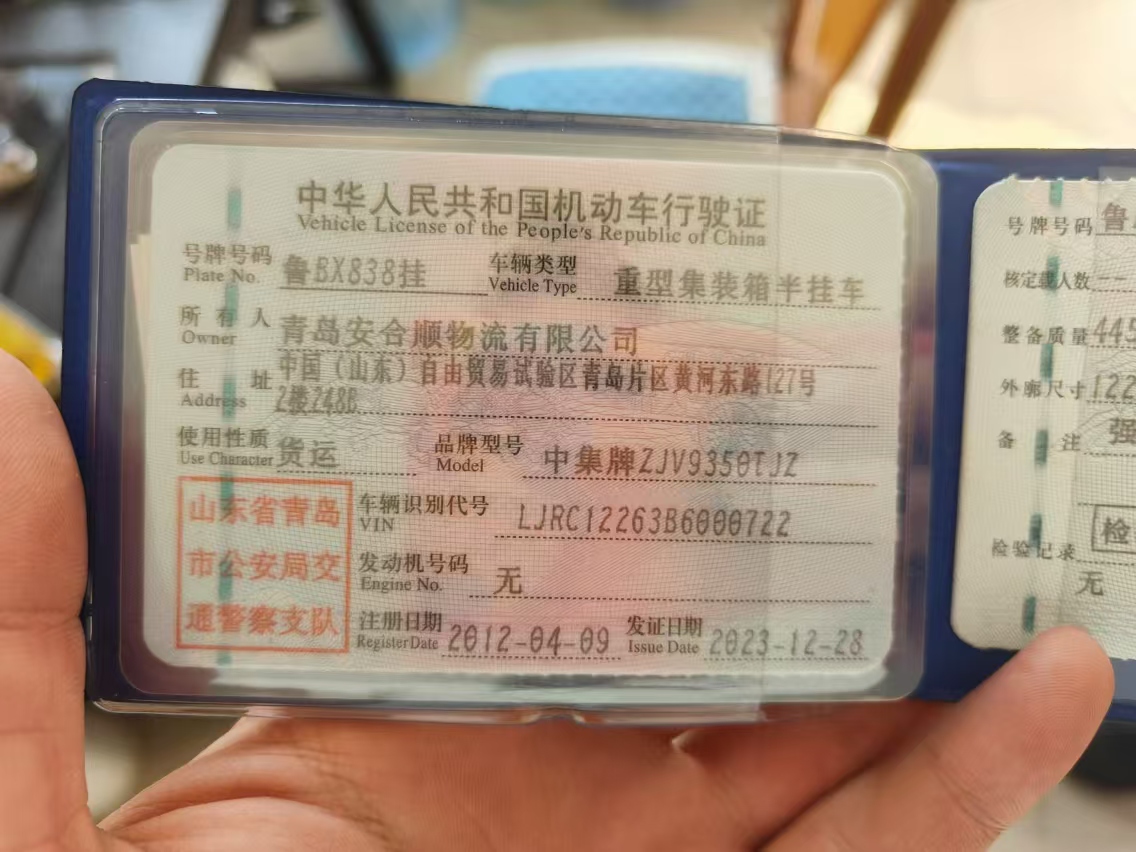 中华人民共和国机动车行驶证
Vehicle License of the People's Republic of China
号牌号码 鲁BX838挂 车辆类型 重型集装箱半挂车
Plate No. Vehicle Type
所有人 青岛安合顺物流有限公司
Owner
住址 中国（山东）自由贸易试验区青岛片区黄河东路127号
Address 2楼248B
使用性质 货运 品牌型号 中集牌ZJV9350TJZ
Use Character Model
山东省青岛
市公安局交
通警察支队
车辆识别代号 LJRC12263B6000722
VIN
发动机号码 无
Engine No.
注册日期 2012-04-09 发证日期 2023-12-28
Register Date Issue Date
号牌号码 鲁
核定载人数 --
整备质量 445
外廓尺寸 122
备注 强
检
检验记录
无